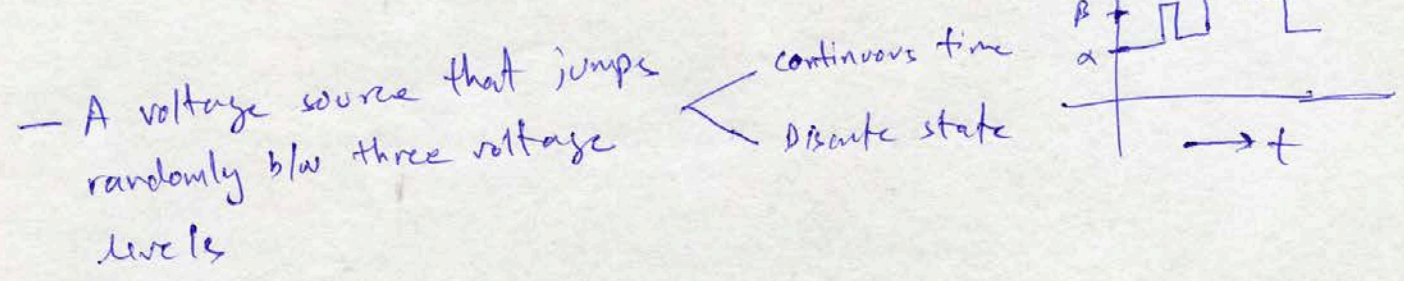 — A voltage source that jumps
randomly b/w three voltage
levels
continuous time
Discrete state
β
α
→ t